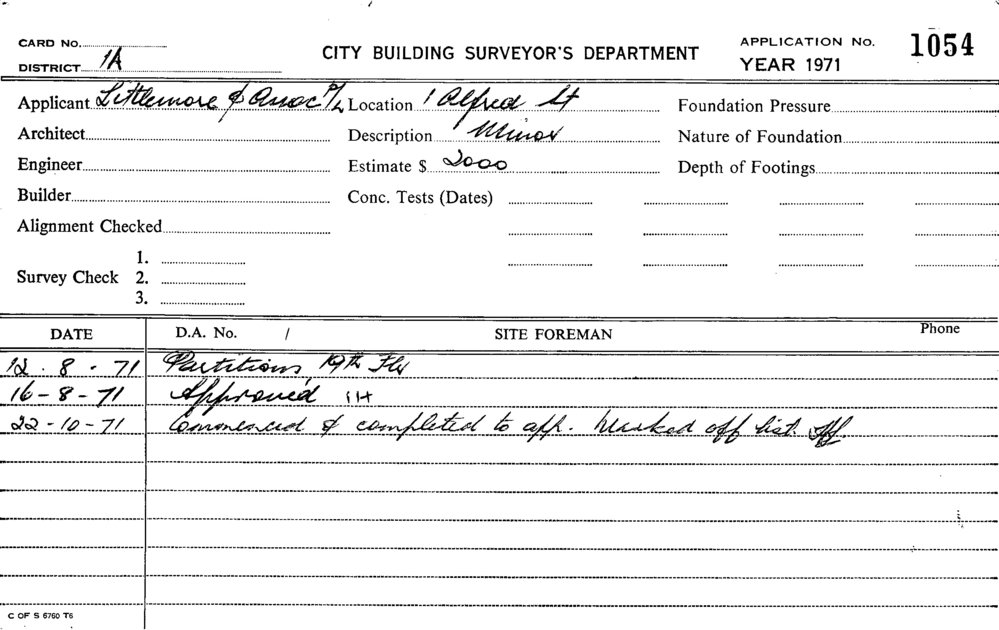 CARD No.
DISTRICT 1A
CITY BUILDING SURVEYOR'S DEPARTMENT
APPLICATION No. 1054
YEAR 1971
Applicant Littlemore & Assoc P/L Location 1 Alfred St Foundation Pressure
Architect Description Minor Nature of Foundation
Engineer Estimate $ 2000 Depth of Footings
Builder Conc. Tests (Dates)
Alignment Checked
1.
Survey Check 2.
3.
DATE D.A. No. / SITE FOREMAN Phone
12.8.71 Partitions 19th Flr
16-8-71 Approved
22-10-71 Commenced & completed to app. Marked off list.
C OF S 6760 T6